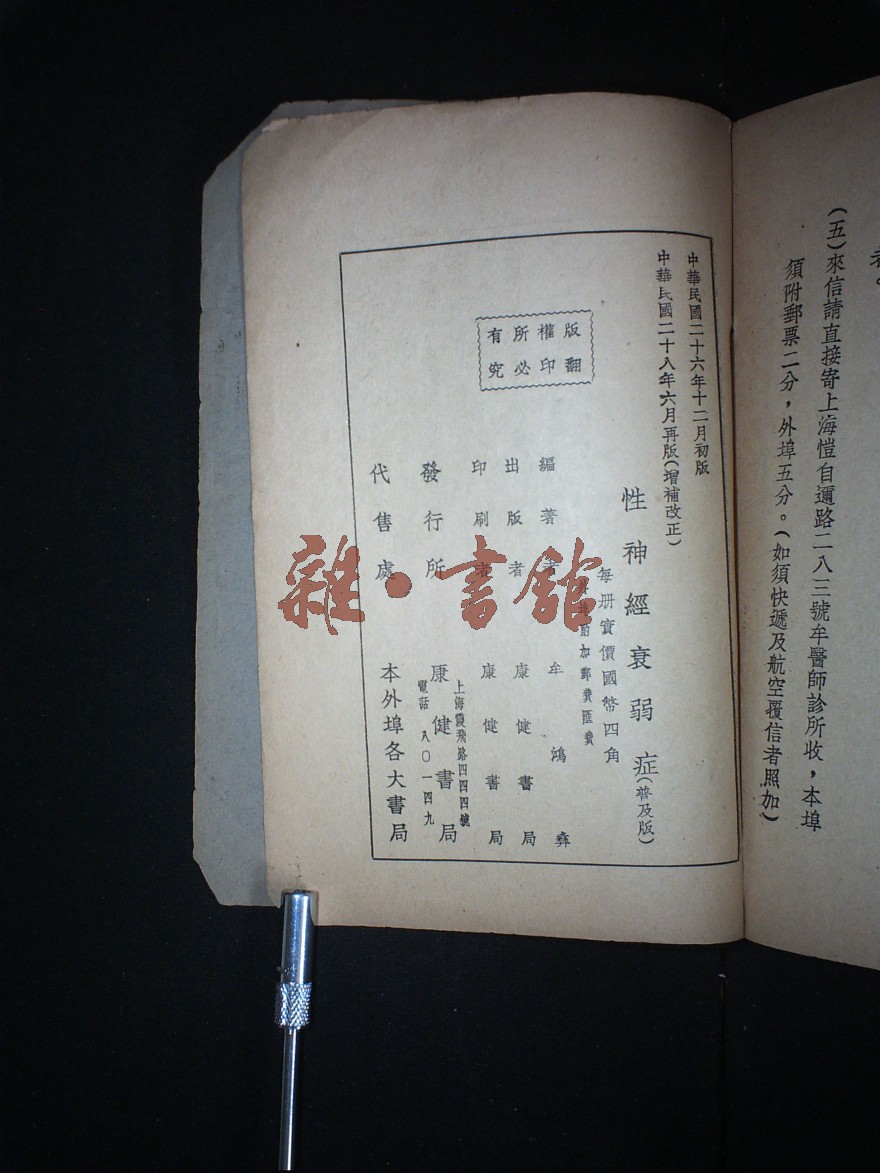 者。
(五)來信請直接寄上海愷自邇路二八三號牟醫師診所收，本埠
須附郵票二分，外埠五分。(如須快遞及航空覆信者照加)
中華民國二十六年十二月初版
中華民國二十八年六月再版(增補改正)
版權所有
翻印必究
性神經衰弱症(普及版)
每册實價國幣四角
外埠酌加郵費匯費
編著者 牟鴻彝
出版者 康健書局
印刷者 康健書局
發行所 康健書局
上海霞飛路四四四號
電話 八〇一四九
代售處 本外埠各大書局
雜·書館